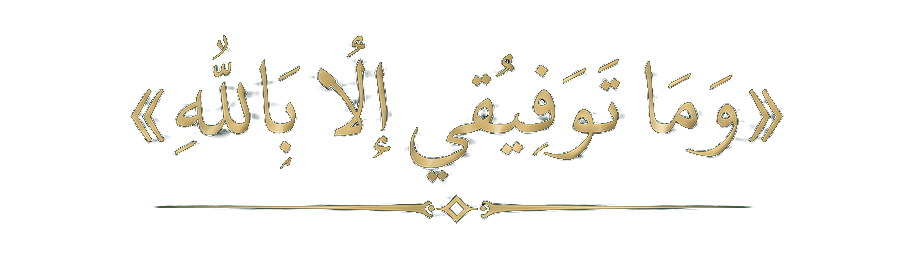 «وَمَا تَوَفِيُقي إِلُا بَِاللَّهُِ»